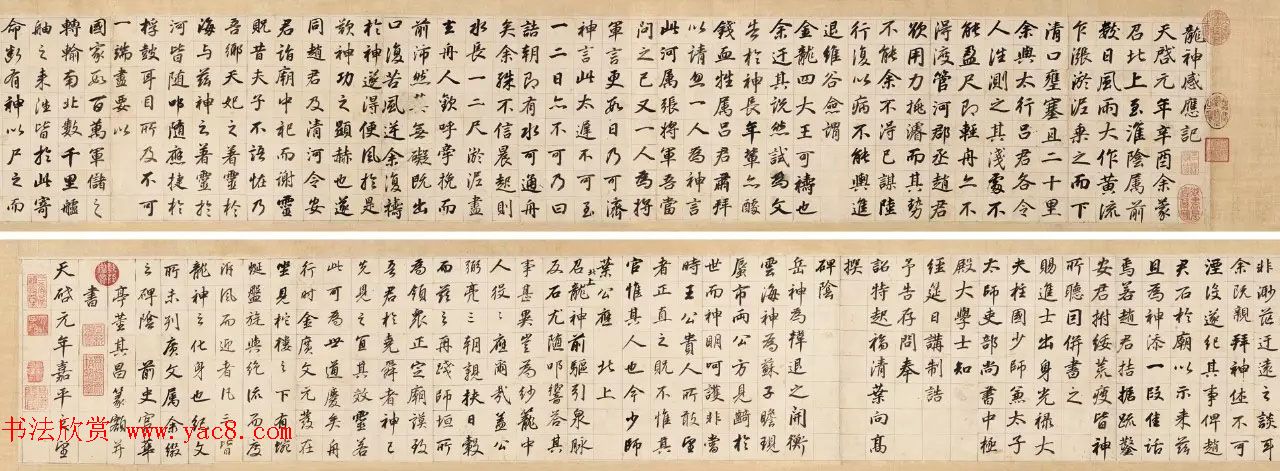 龍神感應記
天啓元年辛酉余蒙
召北上至淮陰属前
數日風雨大作黃流
乍漲淤泥乗之而下
清口壅塞且二十里
余與太行呂君各令
人往測之其淺處不
能盈尺即輕舟亦不
得渡管河郡丞趙君
欲用力挑濬而其勢
不能余不得已謀陸
行復以病不能輿進
退維谷僉謂
金龍四大王可禱也
余迂其説然試為文
告於神長年輩亦釃
錢血牲属呂君肅拜
以請忽一人為神言
此河属張将軍吾當
問之已又一人為将
軍言更數日乃可濟
神言此太遲不可至
一二日亦不可乃曰
詰朝即有水可通舟
矣余殊不信晨起則
水長一二尺淤泥盡
去舟人歡呼牽挽而
前沛然莫礙既出
口復苦風逆余復禱
於神遂得便風於是
歎神功之顯赫也遂
同趙君及清河令安
君詣廟中祀而謝靈
貺昔夫子不語怪乃
吾鄉天妃之著靈於
海与茲神之著靈於
河皆随叩随應捷於
桴鼓耳目所及不可
一端盡要以
國家數百萬軍儲之
轉輸南北數千里艫
舳之来往皆於此寄
命斷有神以尸之而
非渺茫迂遠之談耳
余既親拜神休不可
湮没遂纪其事俾趙
君石於廟以示来茲
且為神添一段佳話
焉若趙君拮据疏鑿
安君拊綏荒瘦皆神
所聽因併書之
賜進士出身光禄大
夫柱國少師兼太子
太師吏部尚書中極
殿大學士知
經筵日講制誥
予告存問奉
詔特起福清葉向髙
撰
碑陰
岳神為韓退之開衡
雲海神為蘇子瞻現
蜃市兩公方見齮於
世而神明呵護非當
時王公貴人所敢望
者正直之既不惟其
官惟其人也今少師
葉公應 北上
召龍神前驅引泉脉
及石尤随叩響荅其
事甚異豈為紗籠中
人役役應爾哉蓋公
弼亮三朝親扶日轂
而茲再踐師垣所
為領衆正空廟謨致
吾君於堯舜者神已
先見之其效靈若
此可為世道慶矣舟
行時金廣文元茂在
坐見於樓之下有蜿
蜒盤旋與纥流而度
泝風而迎者凡三皆
龍神之化身也紀文
所未列廣文属余缀
之碑陰 前史官華
亭董其昌篆額并
書
天啓元年嘉平月望
书法欣赏 www.yac8.com